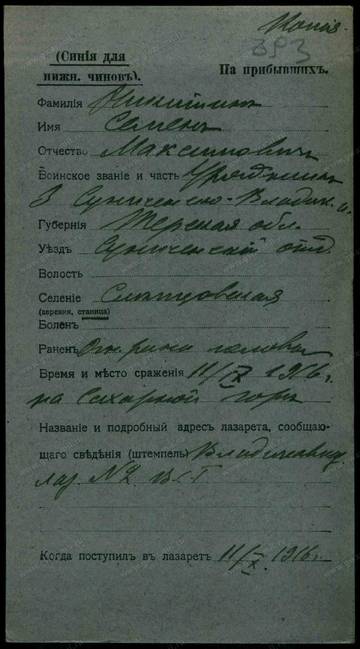 Копія
(Синія для
нижн. чиновъ).
На прибывшихъ.
Фамилія Никитинъ
Имя Семенъ
Отчество Максимовичъ
Воинское званіе и часть Урядникъ
3 Сунженско-Владик. п.
Губернія Терская обл.
Уѣздъ Сунженскій отд.
Волость
Селеніе Слепцовская
(деревня, станица)
Боленъ
Раненъ Огн. рана головы
Время и мѣсто сраженія 11/IX 1916 г.
на Сахарной горѣ
Названіе и подробный адресъ лазарета, сообщаю-
щаго свѣдѣнія (штемпель)
лаз. №2 В.С.Г.
Когда поступилъ въ лазаретъ 11/X 1916 г.